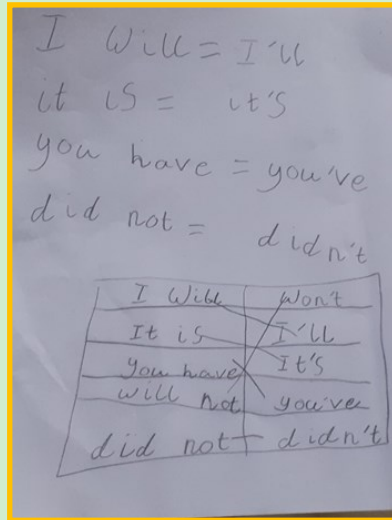 I Will = I'll
it is = it's
you have = you've
did not = didn't
I Will Won't
It is I'll
you have It's
will not you've
did not didn't